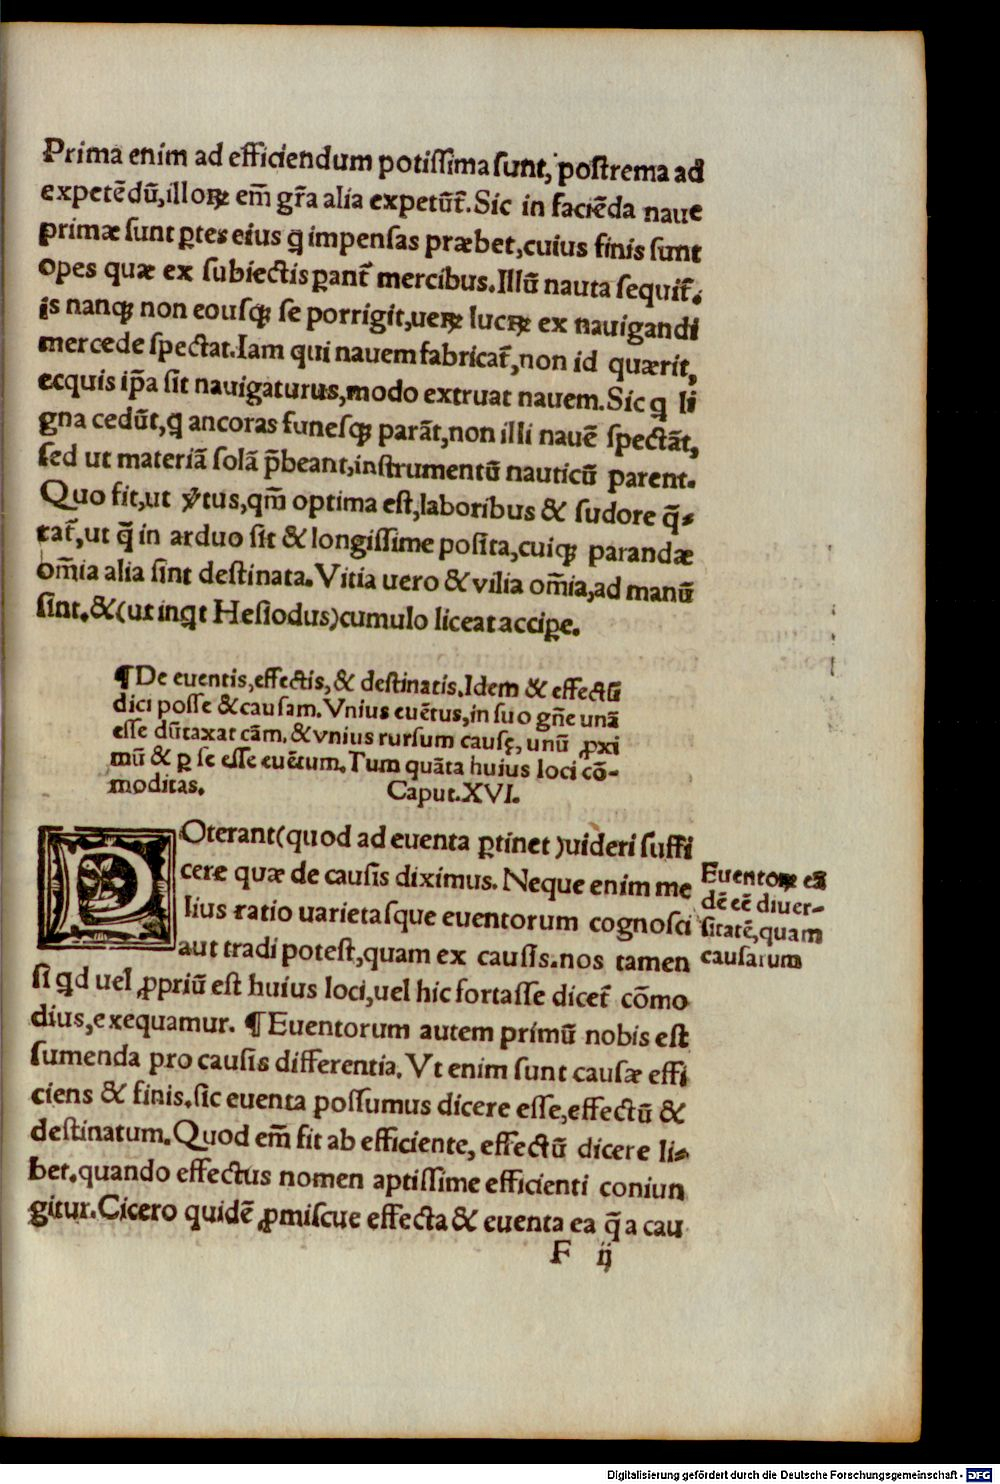 Prima enim ad efficiendum potissima sunt, postrema ad
expetēdū, illoꝝ em̄ gr̄a alia expetūt᷑. Sic in faciēda naue
primæ sunt ꝑtes eius q̇ impensas præbet, cuius finis sunt
opes quæ ex subiectis ꝑant᷑ mercibus. Illū nauta sequit᷑.
is nanqꝫ non eousqꝫ se porrigit, ueꝝ lucꝝ ex nauigandi
mercede spectat. Iam qui nauem fabricat᷑, non id quærit,
ecquis ip̄a sit nauigaturus, modo extruat nauem. Sic q̇ li
gna cedūt, q̇ ancoras funesqꝫ parāt, non illi nauē spectāt,
sed ut materiā solā p̄beant, instrumentū nauticū parent.
Quo fit, ut v̓tus, qm̄ optima est, laboribus & sudore q̄-
rat᷑, ut q̄ in arduo sit & longissime posita, cuiqꝫ parandæ
om̄ia alia sint destinata. Vitia uero & vilia om̄ia, ad manū
sint. & (ut inq̇t Hesiodus) cumulo liceat acciꝑe.
¶ De euentis, effectis, & destinatis. Idem & effectū
dici posse & causam. Vnius euētus, in suo gn̄e unā
esse dūtaxat cām. & vnius rursum causę, unū ꝓxi
mū & ꝑ se esse euētum. Tum quāta huius loci cō-
moditas. Caput. XVI.
POterant (quod ad euenta ꝑtinet) uideri suffi
cere quæ de causis diximus. Neque enim me
lius ratio uarietasque euentorum cognosci
aut tradi potest, quam ex causis. nos tamen
si qd uel ꝓpriū est huius loci, uel hic fortasse dicet᷑ cōmo
dius, exequamur. ¶ Euentorum autem primū nobis est
sumenda pro causis differentia. Vt enim sunt causæ effi
ciens & finis. sic euenta possumus dicere esse, effectū &
destinatum. Quod em̄ fit ab efficiente, effectū dicere li-
bet. quando effectus nomen aptissime efficienti coniun
gitur. Cicero quidē ꝓmiscue effecta & euenta ea q̄ a cau
F ij
Euentoꝝ eā
dē eē diuer-
sitatē, quam
causarum
Digitalisierung gefördert durch die Deutsche Forschungsgemeinschaft - DFG